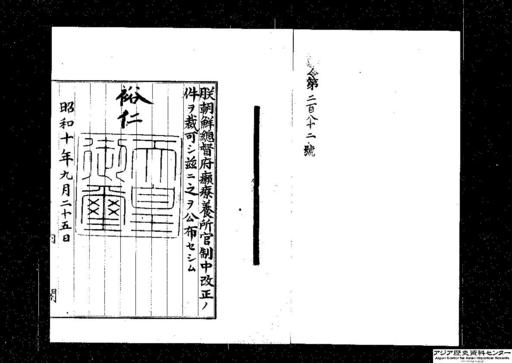 令第二百八十二號
朕朝鮮總督府癩療養所官制中改正ノ
件ヲ裁可シ茲ニ之ヲ公布セシム
裕仁
天皇
御璽
昭和十年九月二十五日
アジア歴史資料センター
Japan Center for Asian Historical Records